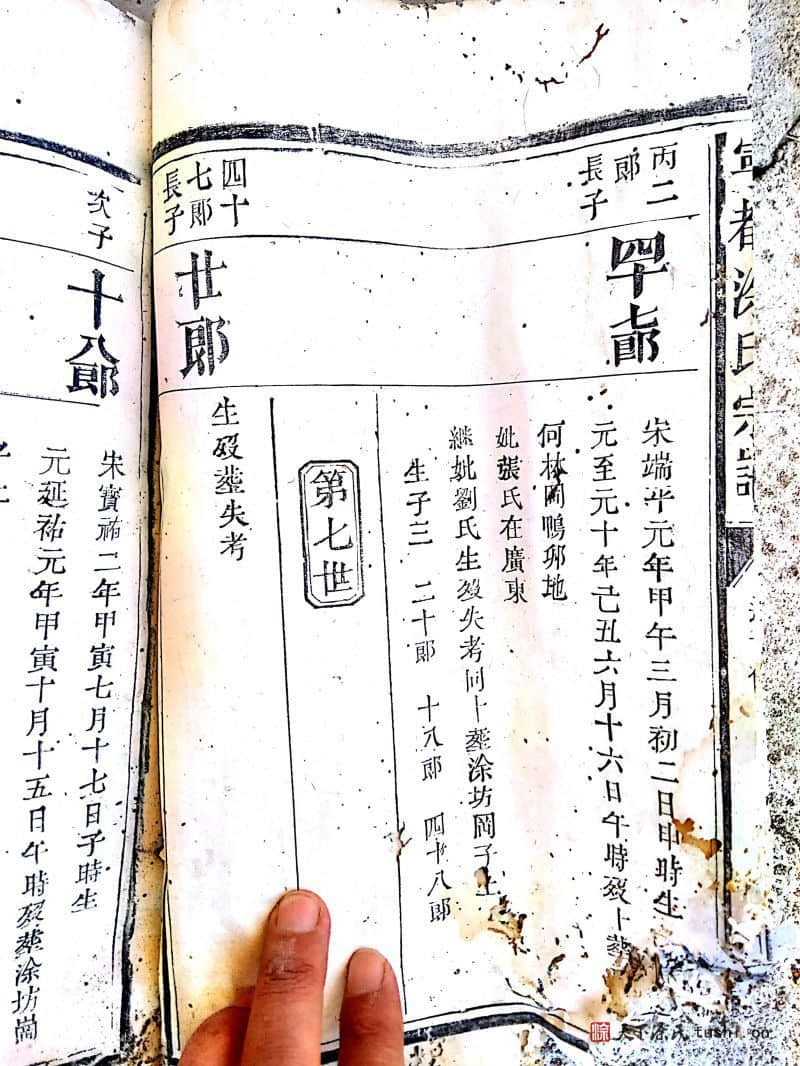 寧都涂氏宗譜
丙二
郎
長子
四十七郎
宋端平元年甲午三月初二日申時生
元至元十年己丑六月十六日午時歿卜葬
何林岡鴨卵地
妣張氏在廣東
繼妣劉氏生歿失考同卜葬涂坊岡子上
生子三 二十郎 十八郎 四十八郎
第七世
四十
七郎
長子
廿郎
生歿葬失考
次子
十八郎
宋寳祐二年甲寅七月十七日子時生
元延祐元年甲寅十月十五日午時歿葬涂坊崗
子上
tushi